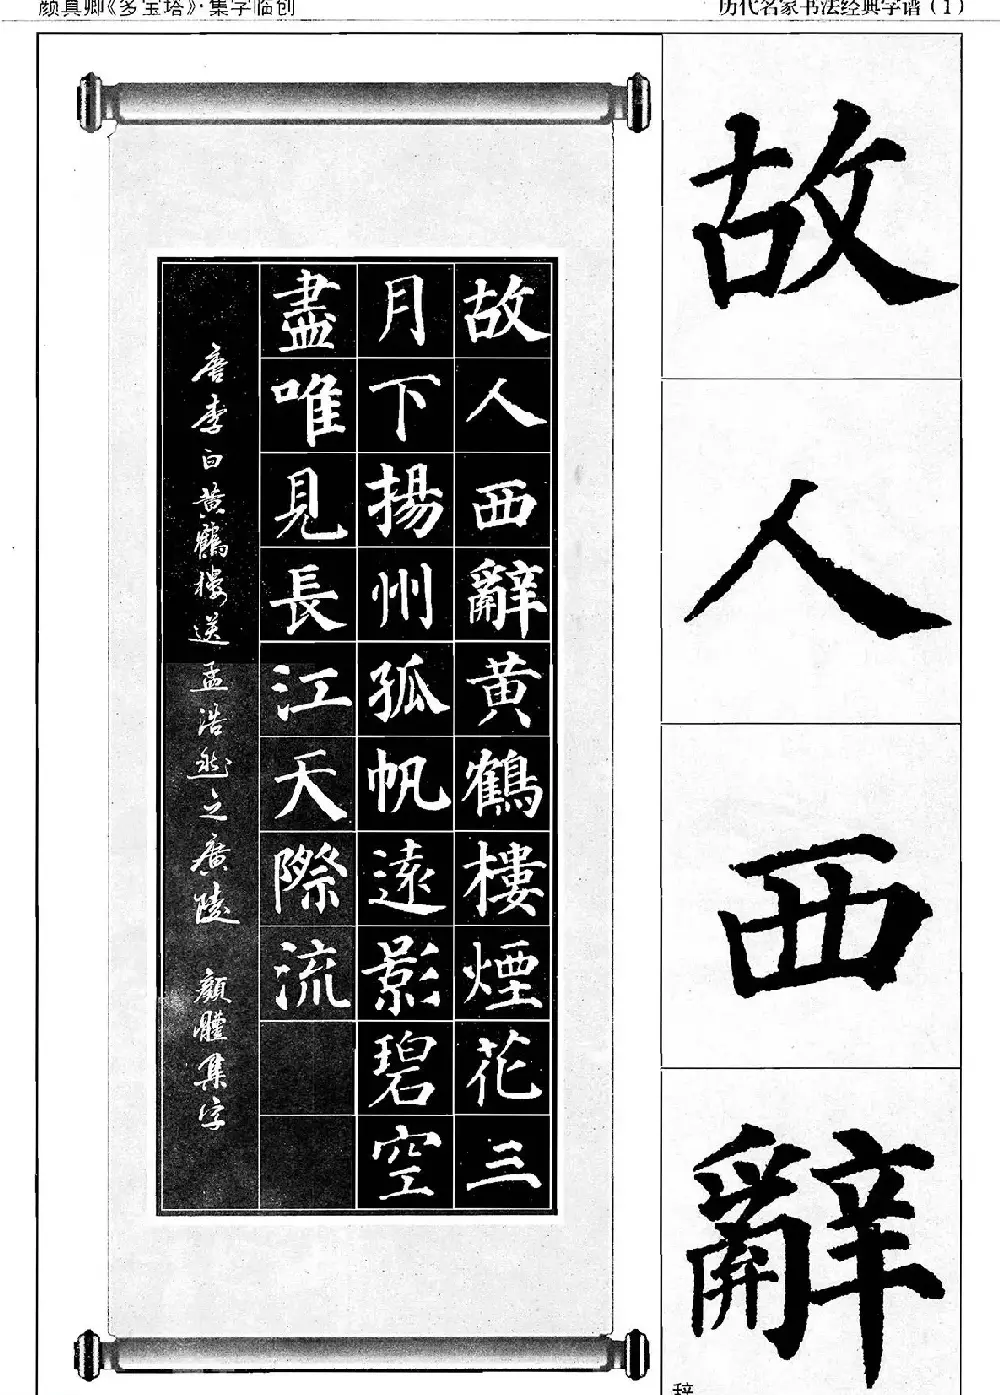 颜真卿《多宝塔》·集字临创
历代名家书法经典字谱（1）
故人西辭黄鶴樓煙花三
月下揚州孤帆遠影碧空
盡唯見長江天際流
唐李白黄鶴樓送孟浩然之廣陵 顔體集字
故
人
西
辭
辞